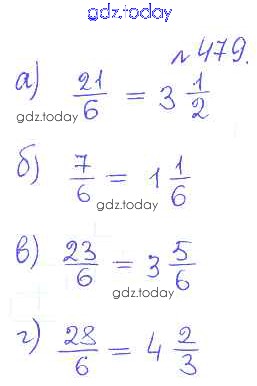 gdz.today
№479.
а) 21/6 = 3 1/2
gdz.today
б) 7/6 = 1 1/6
gdz.today
в) 23/6 = 3 5/6
gdz.today
г) 28/6 = 4 2/3